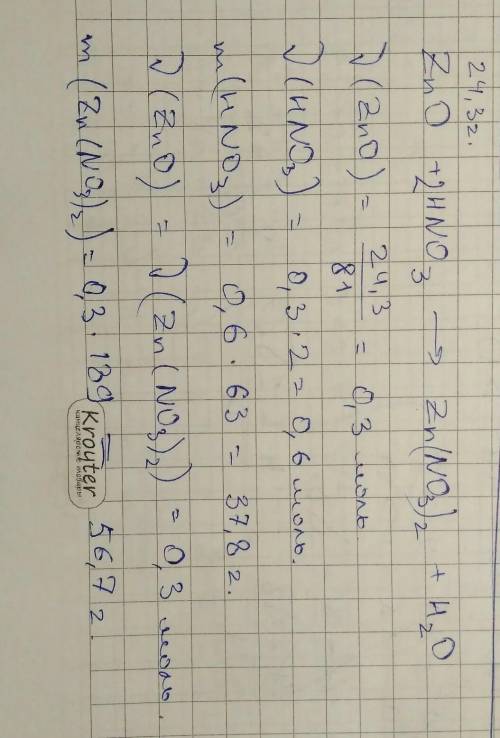 24,3г.
ZnO + 2HNO3 → Zn(NO3)2 + H2O
ν(ZnO) = 24,3/81 = 0,3 моль
ν(HNO3) = 0,3 · 2 = 0,6 моль.
m(HNO3) = 0,6 · 63 = 37,8 г.
ν(ZnO) = ν(Zn(NO3)2) = 0,3 моль.
m(Zn(NO3)2) = 0,3 · 189 = 56,7 г.
Krouter
канцелярские товары